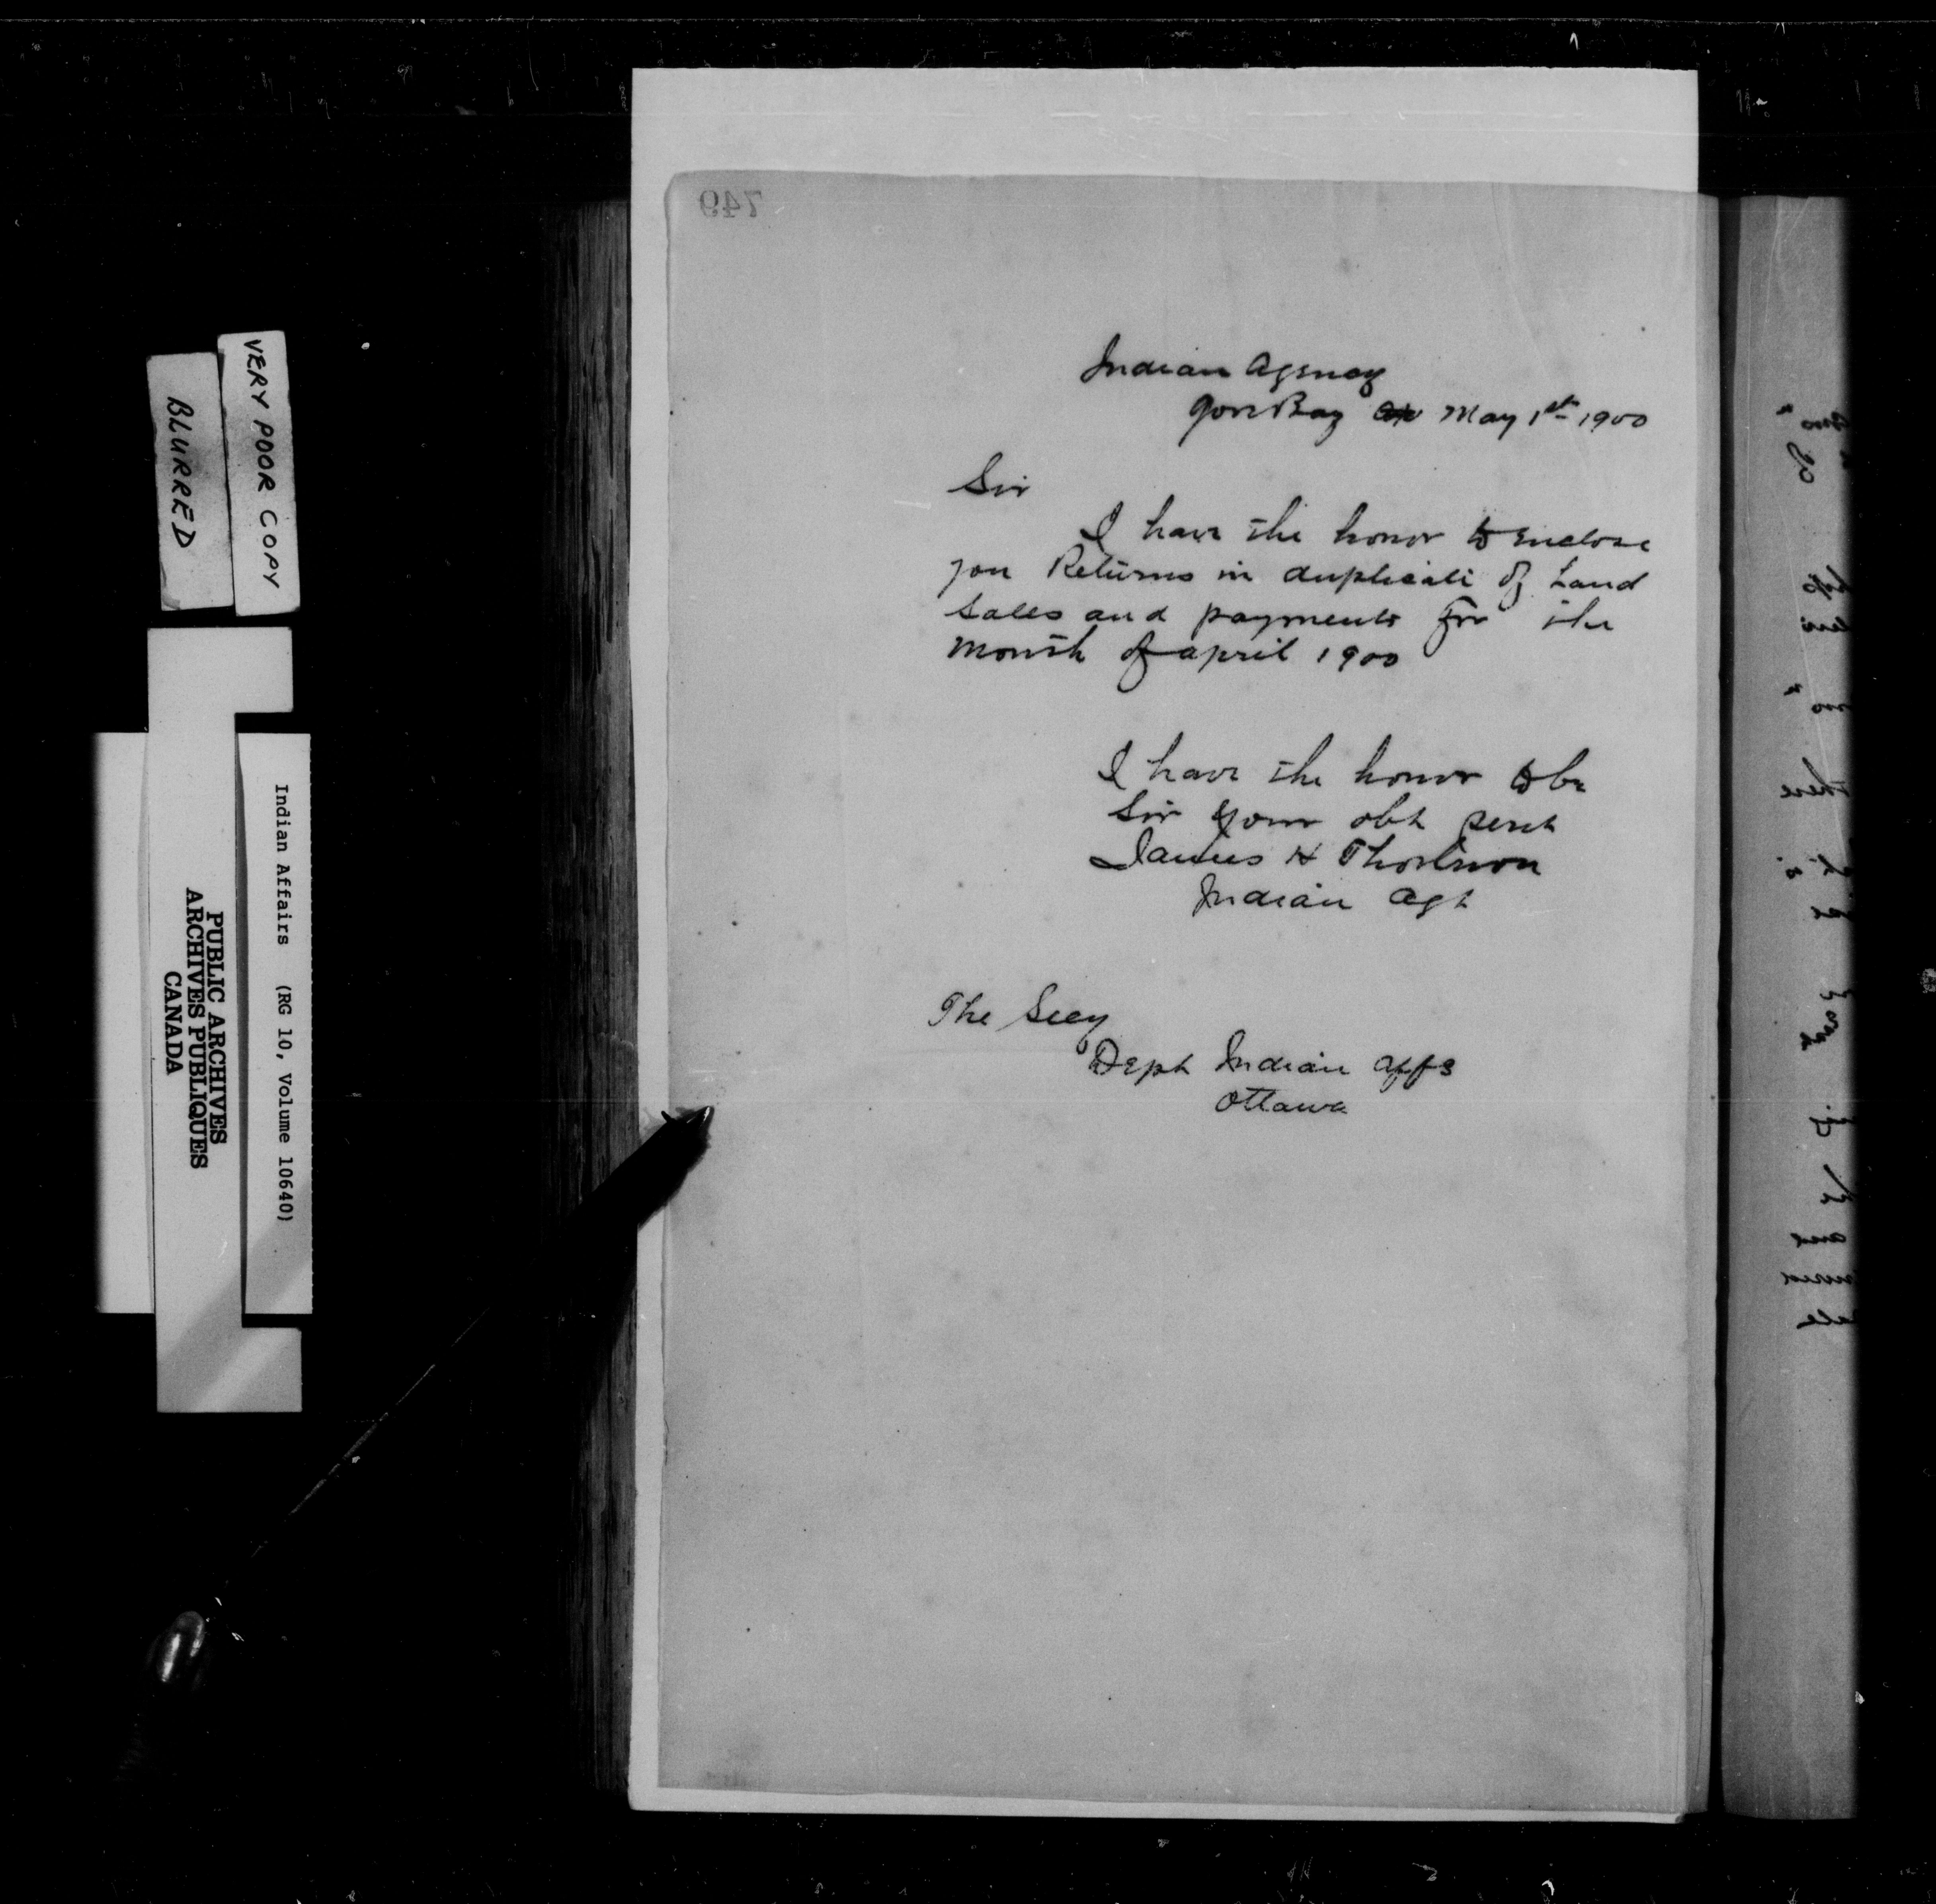 749
Indian Agency
Gore Bay May 1st 1900
Sir
I have the honor to enclose
you Returns in duplicate of Land
Sales and payments for the
month of April 1900
I have the honor to be
Sir your obt servt
James H Thorburn
Indian Agt
The Secy
Dept Indian Affs
Ottawa
VERY POOR COPY
BLURRED
Indian Affairs (RG 10, Volume 10640)
PUBLIC ARCHIVES
ARCHIVES PUBLIQUES
CANADA